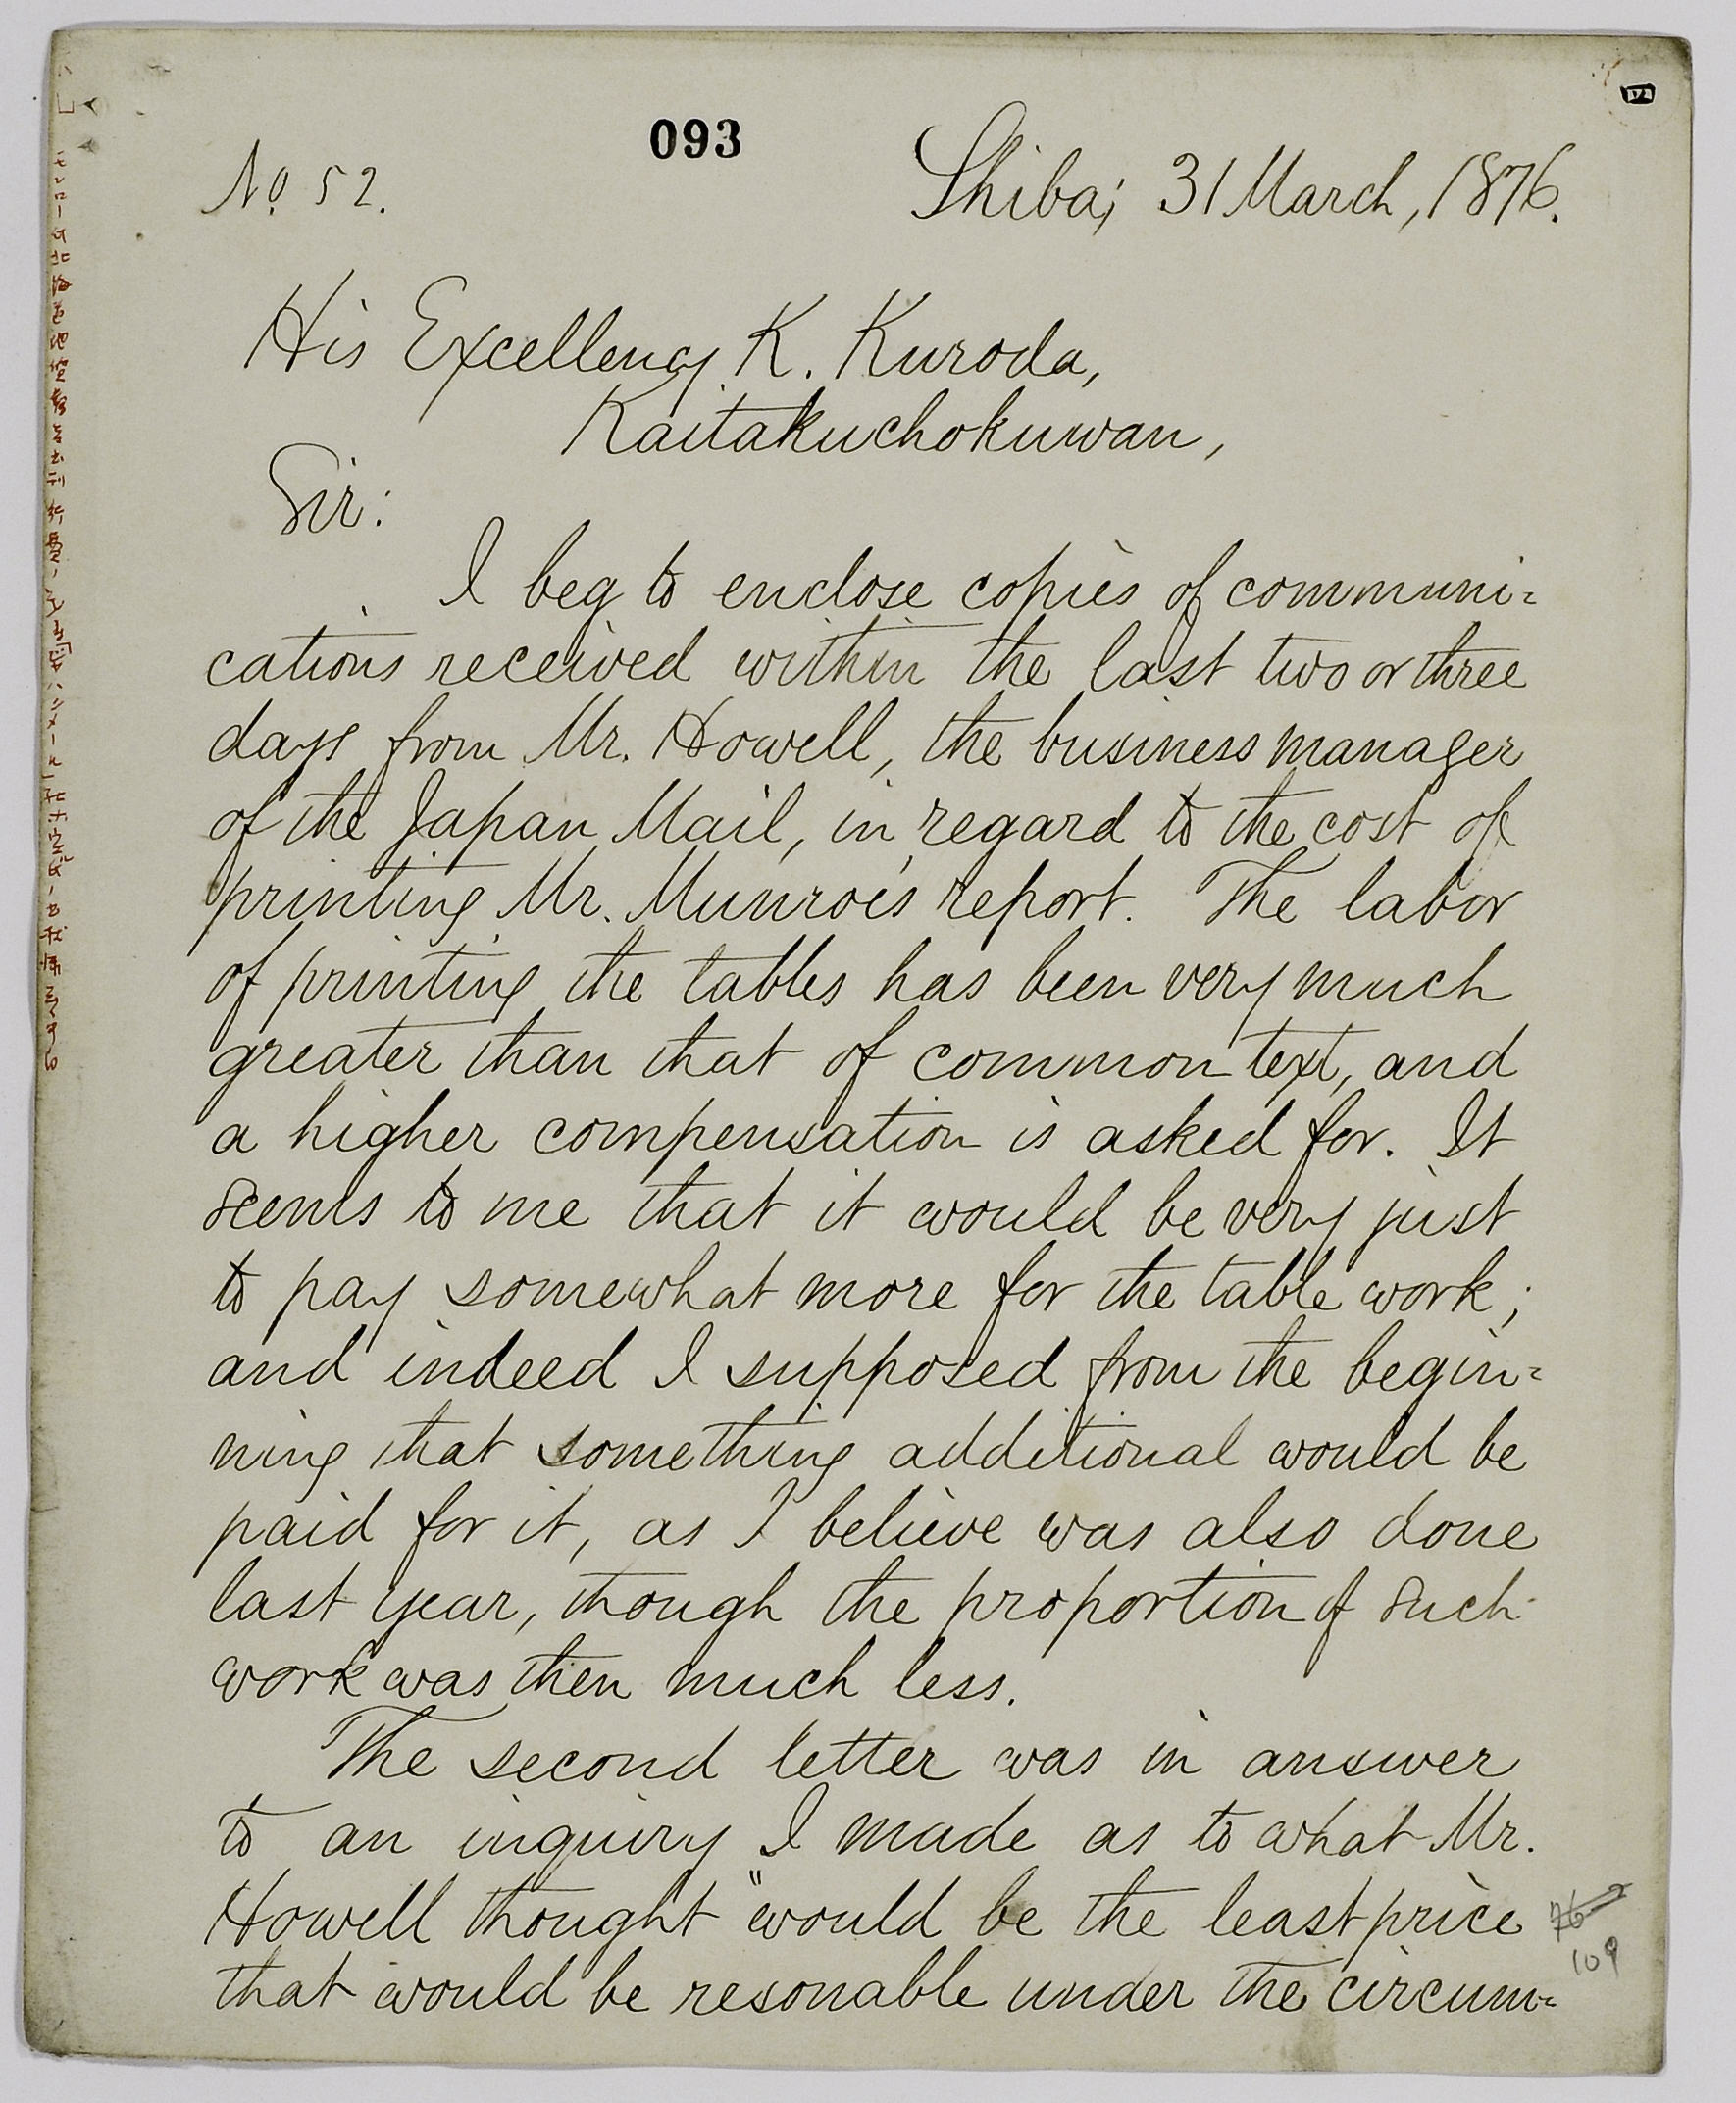 093
No. 52.
Shiba; 31 March, 1876.
His Excellency K. Kuroda,
Kaitakuchokuwan,
Sir:
I beg to enclose copies of communi=
cations received within the last two or three
days from Mr. Howell, the business manager
of the Japan Mail, in regard to the cost of
printing Mr. Munroe's report. The labor
of printing the tables has been very much
greater than that of common text, and
a higher compensation is asked for. It
seems to me that it would be very just
to pay somewhat more for the table work;
and indeed I supposed from the begin=
ning that something additional would be
paid for it, as I believe was also done
last year, though the proportion of such
work was then much less.
The second letter was in answer
to an inquiry I made as to what Mr.
Howell thought "would be the least price
that would be resonable under the circum=
76
109